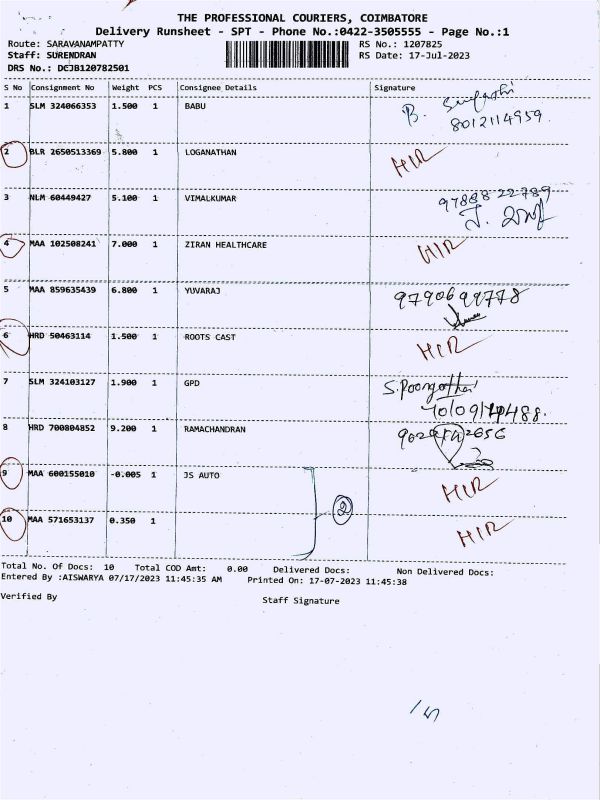 THE PROFESSIONAL COURIERS, COIMBATORE
Delivery Runsheet - SPT - Phone No.:0422-3505555 - Page No.:1
Route: SARAVANAMPATTY RS No.: 1207825
Staff: SURENDRAN RS Date: 17-Jul-2023
DRS No.: DCJB120782501
S No Consignment No Weight PCS Consignee Details Signature
1 SLM 324066353 1.500 1 BABU B.
8012114959
2 BLR 2650513369 5.800 1 LOGANATHAN HIR
3 NLM 60449427 5.100 1 VIMALKUMAR 97888 22789
4 MAA 102508241 7.000 1 ZIRAN HEALTHCARE HIR
5 MAA 859635439 6.800 1 YUVARAJ 9790699778
6 HRD 50463114 1.500 1 ROOTS CAST HIR
7 SLM 324103127 1.900 1 GPD S.Poongothai
8 HRD 700804852 9.200 1 RAMACHANDRAN
9 MAA 600155010 -0.005 1 JS AUTO HIR
2
10 MAA 571653137 0.350 1 HIR
Total No. Of Docs: 10 Total COD Amt: 0.00 Delivered Docs: Non Delivered Docs:
Entered By :AISWARYA 07/17/2023 11:45:35 AM Printed On: 17-07-2023 11:45:38
Verified By Staff Signature